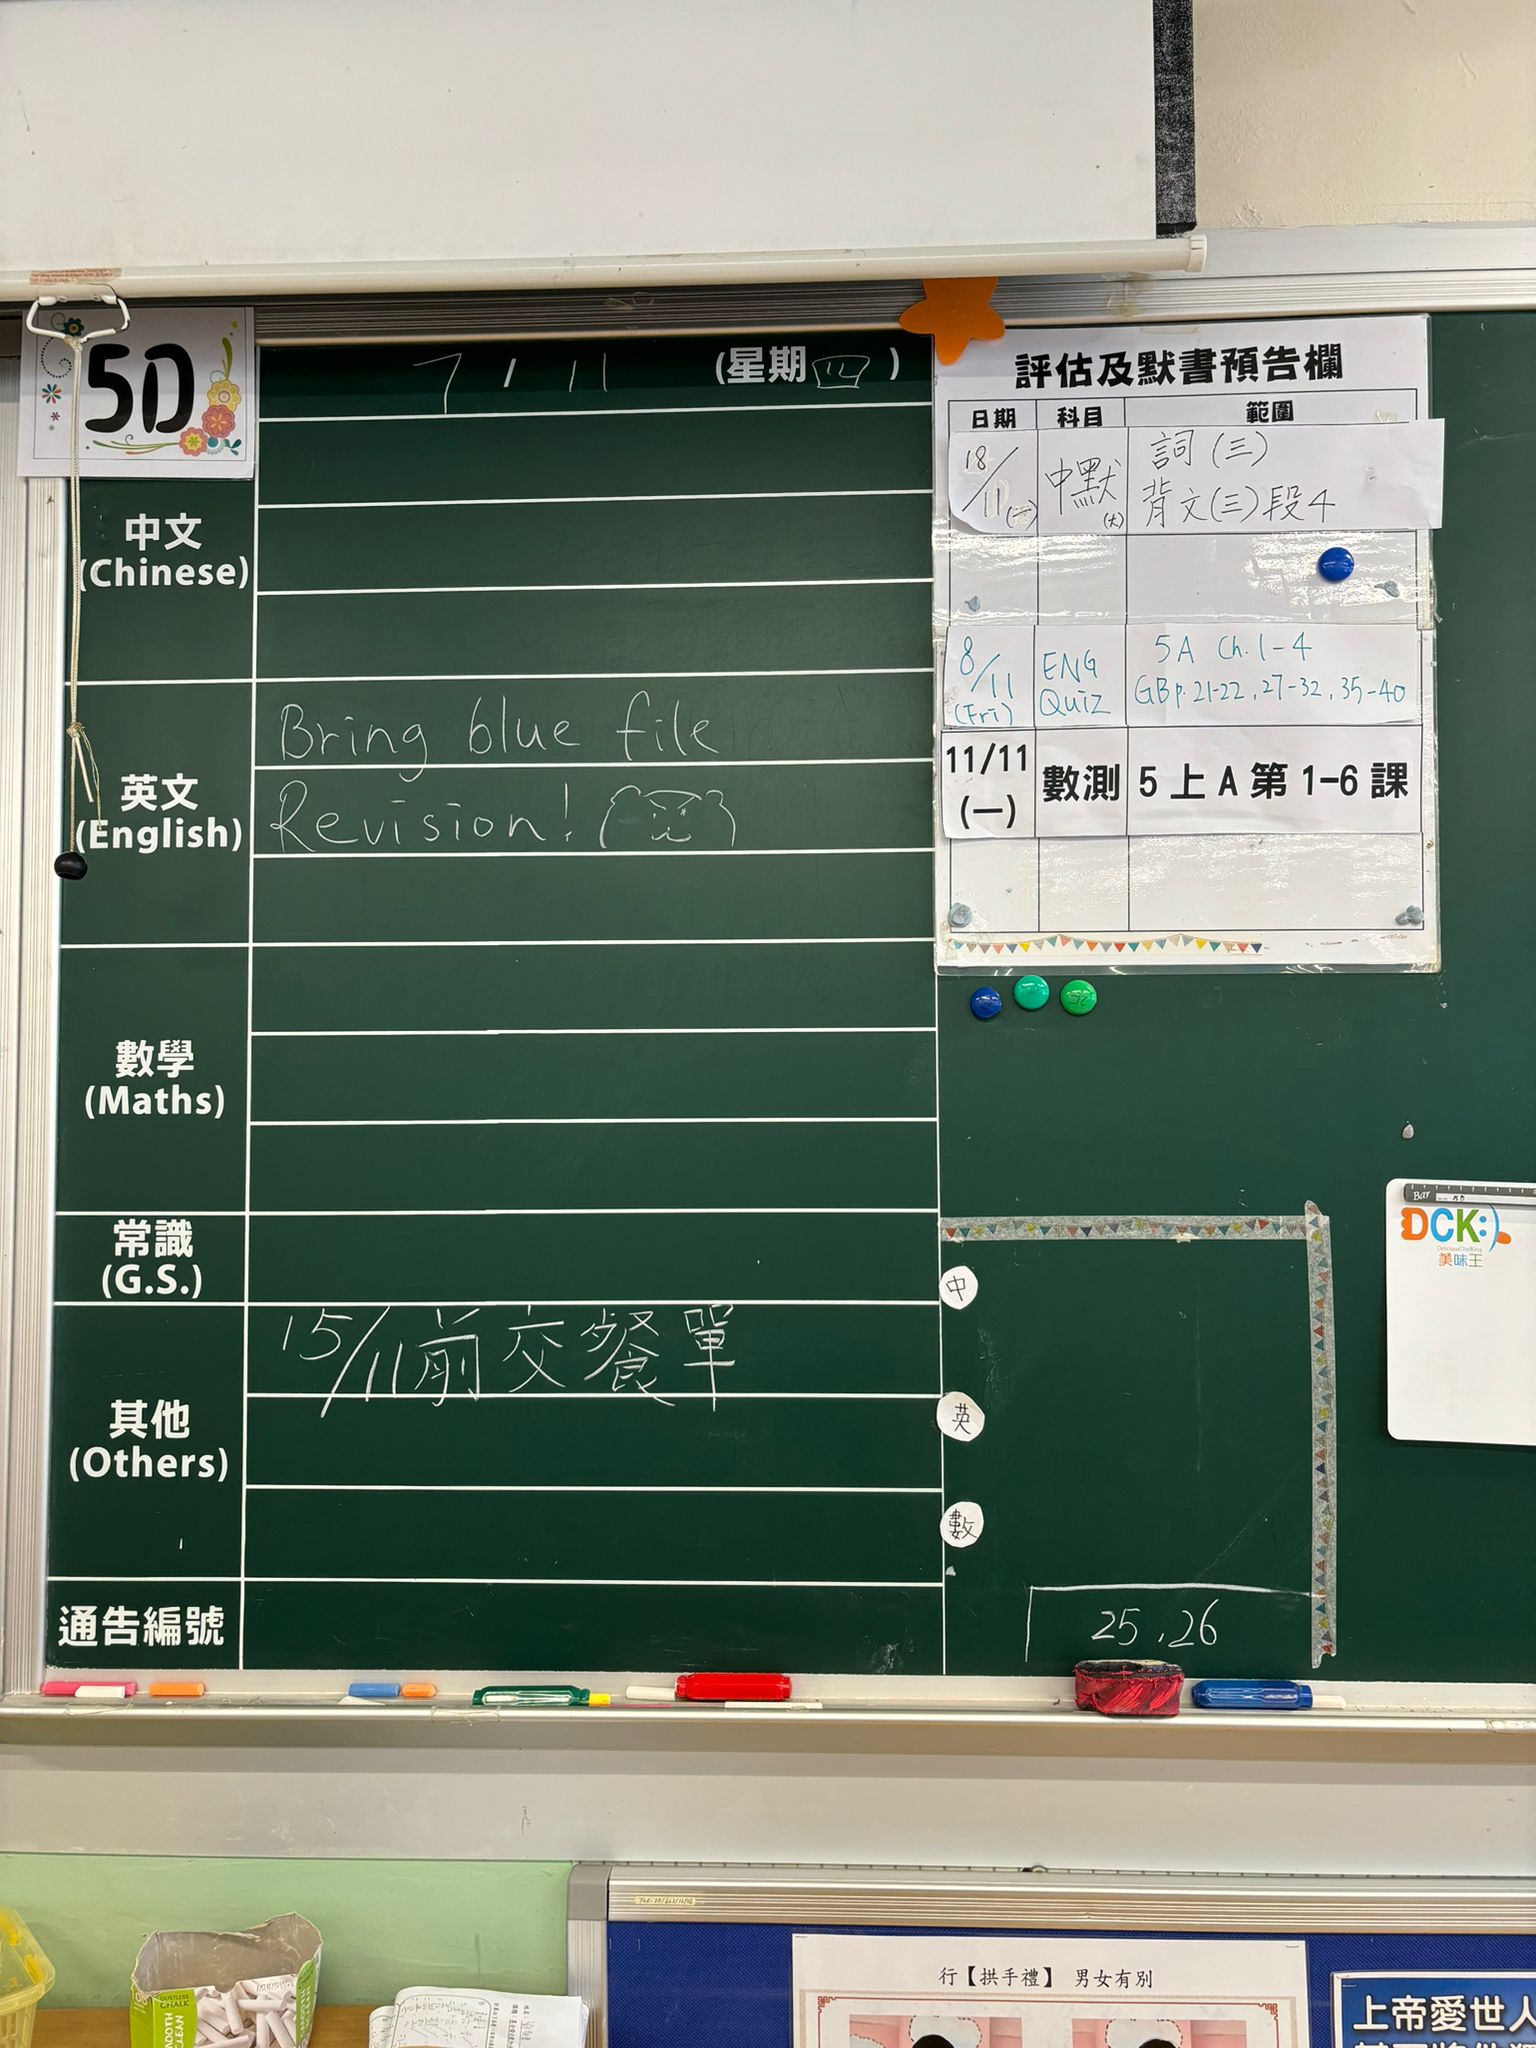 5D
7 / 11 (星期四)
中文
(Chinese)
英文
(English)
Bring blue file
Revision!
數學
(Maths)
常識
(G.S.)
其他
(Others)
15/11前交餐單
通告編號
評估及默書預告欄
日期 科目 範圍
18/11(一) 中默(大) 詞(三)
背文(三)段4
8/11 (Fri) ENG Quiz 5A Ch. 1-4
GB p. 21-22, 27-32, 35-40
11/11 (一) 數測 5上A第1-6課
中
英
數
25, 26
Bar
DCK:)
美味王
DUSTLESS
CHALK
SMOOTH
CLEAN
行【拱手禮】 男女有別
上帝愛世人